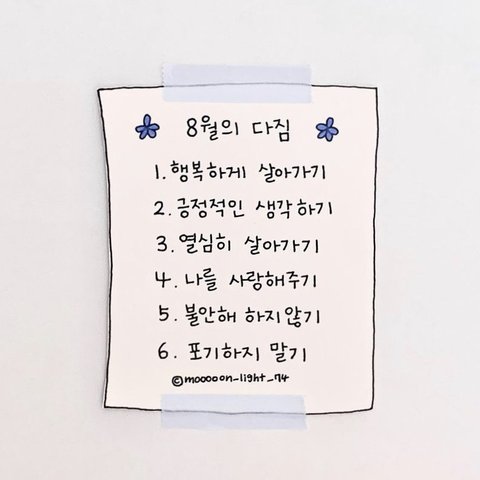 8월의 다짐
1. 행복하게 살아가기
2. 긍정적인 생각하기
3. 열심히 살아가기
4. 나를 사랑해주기
5. 불안해 하지않기
6. 포기하지 말기
©mooooon_light_74